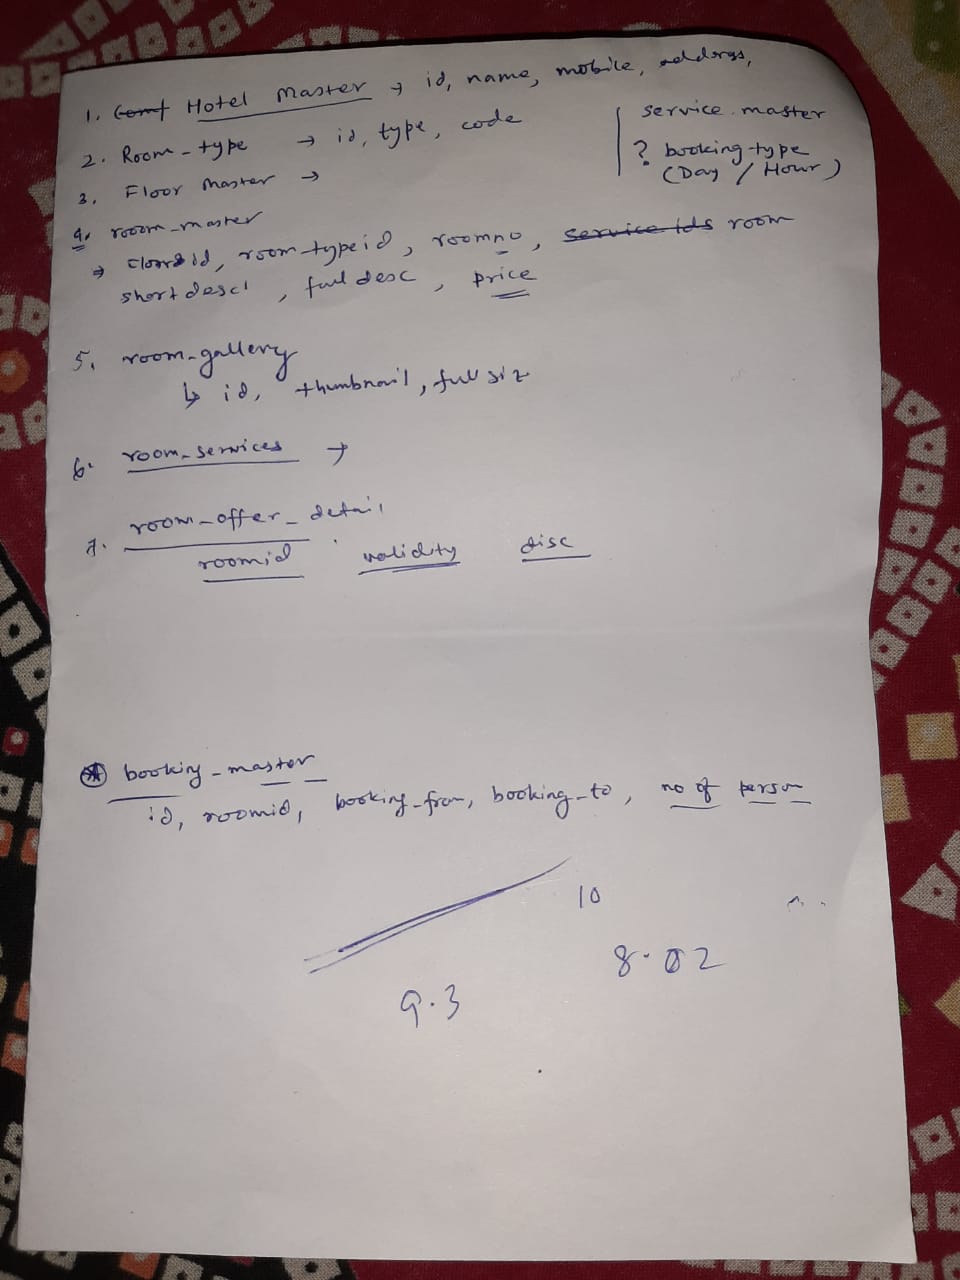 1. Hotel Master → id, name, mobile, address,
2. Room-type → id, type, code
3. Floor Master →
service master
? booking-type
(Day / Hour)
4. room-master
→ id, room-typeid, roomno, service ids room
short desc, full desc, price
5. room-gallery
↳ id, thumbnail, full siz
6. room-services →
7. room-offer-detail
roomid validity disc
booking-master
id, roomid, booking-from, booking-to, no of person
10
8.02
9.3